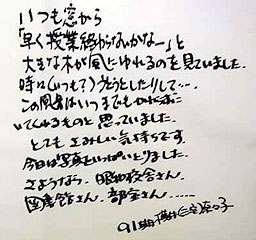 いつも窓から
「早く授業終わらないかな〜」と
大きな木が風にゆれるのを見ていました。
時に(いつも？)うとうとしたりして…。
この風景はいつまでも
いてくれるものと思っていました。
とてもさみしい気持ちです。
今日は写真をいっぱいとりました。
さようなら、昭和校舎さん、
図書館さん、部室さん……
91期